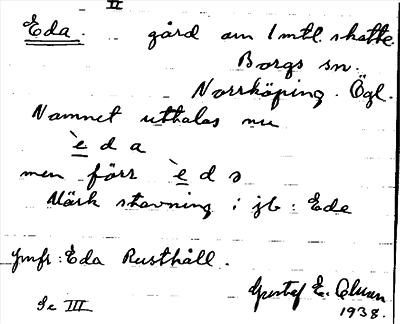 II
Eda. gård om 1 mtl. skatte.
Borgs sn.
Norrköping. Ögl.
Namnet uthalas nu
`e d a
men förr `e d ə
Märk stavning i jb: Ede
Jmfr: Eda Rusthåll.
Se III
Gustef E. 
1938.